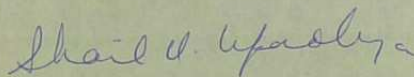 Shail K. Upadhya